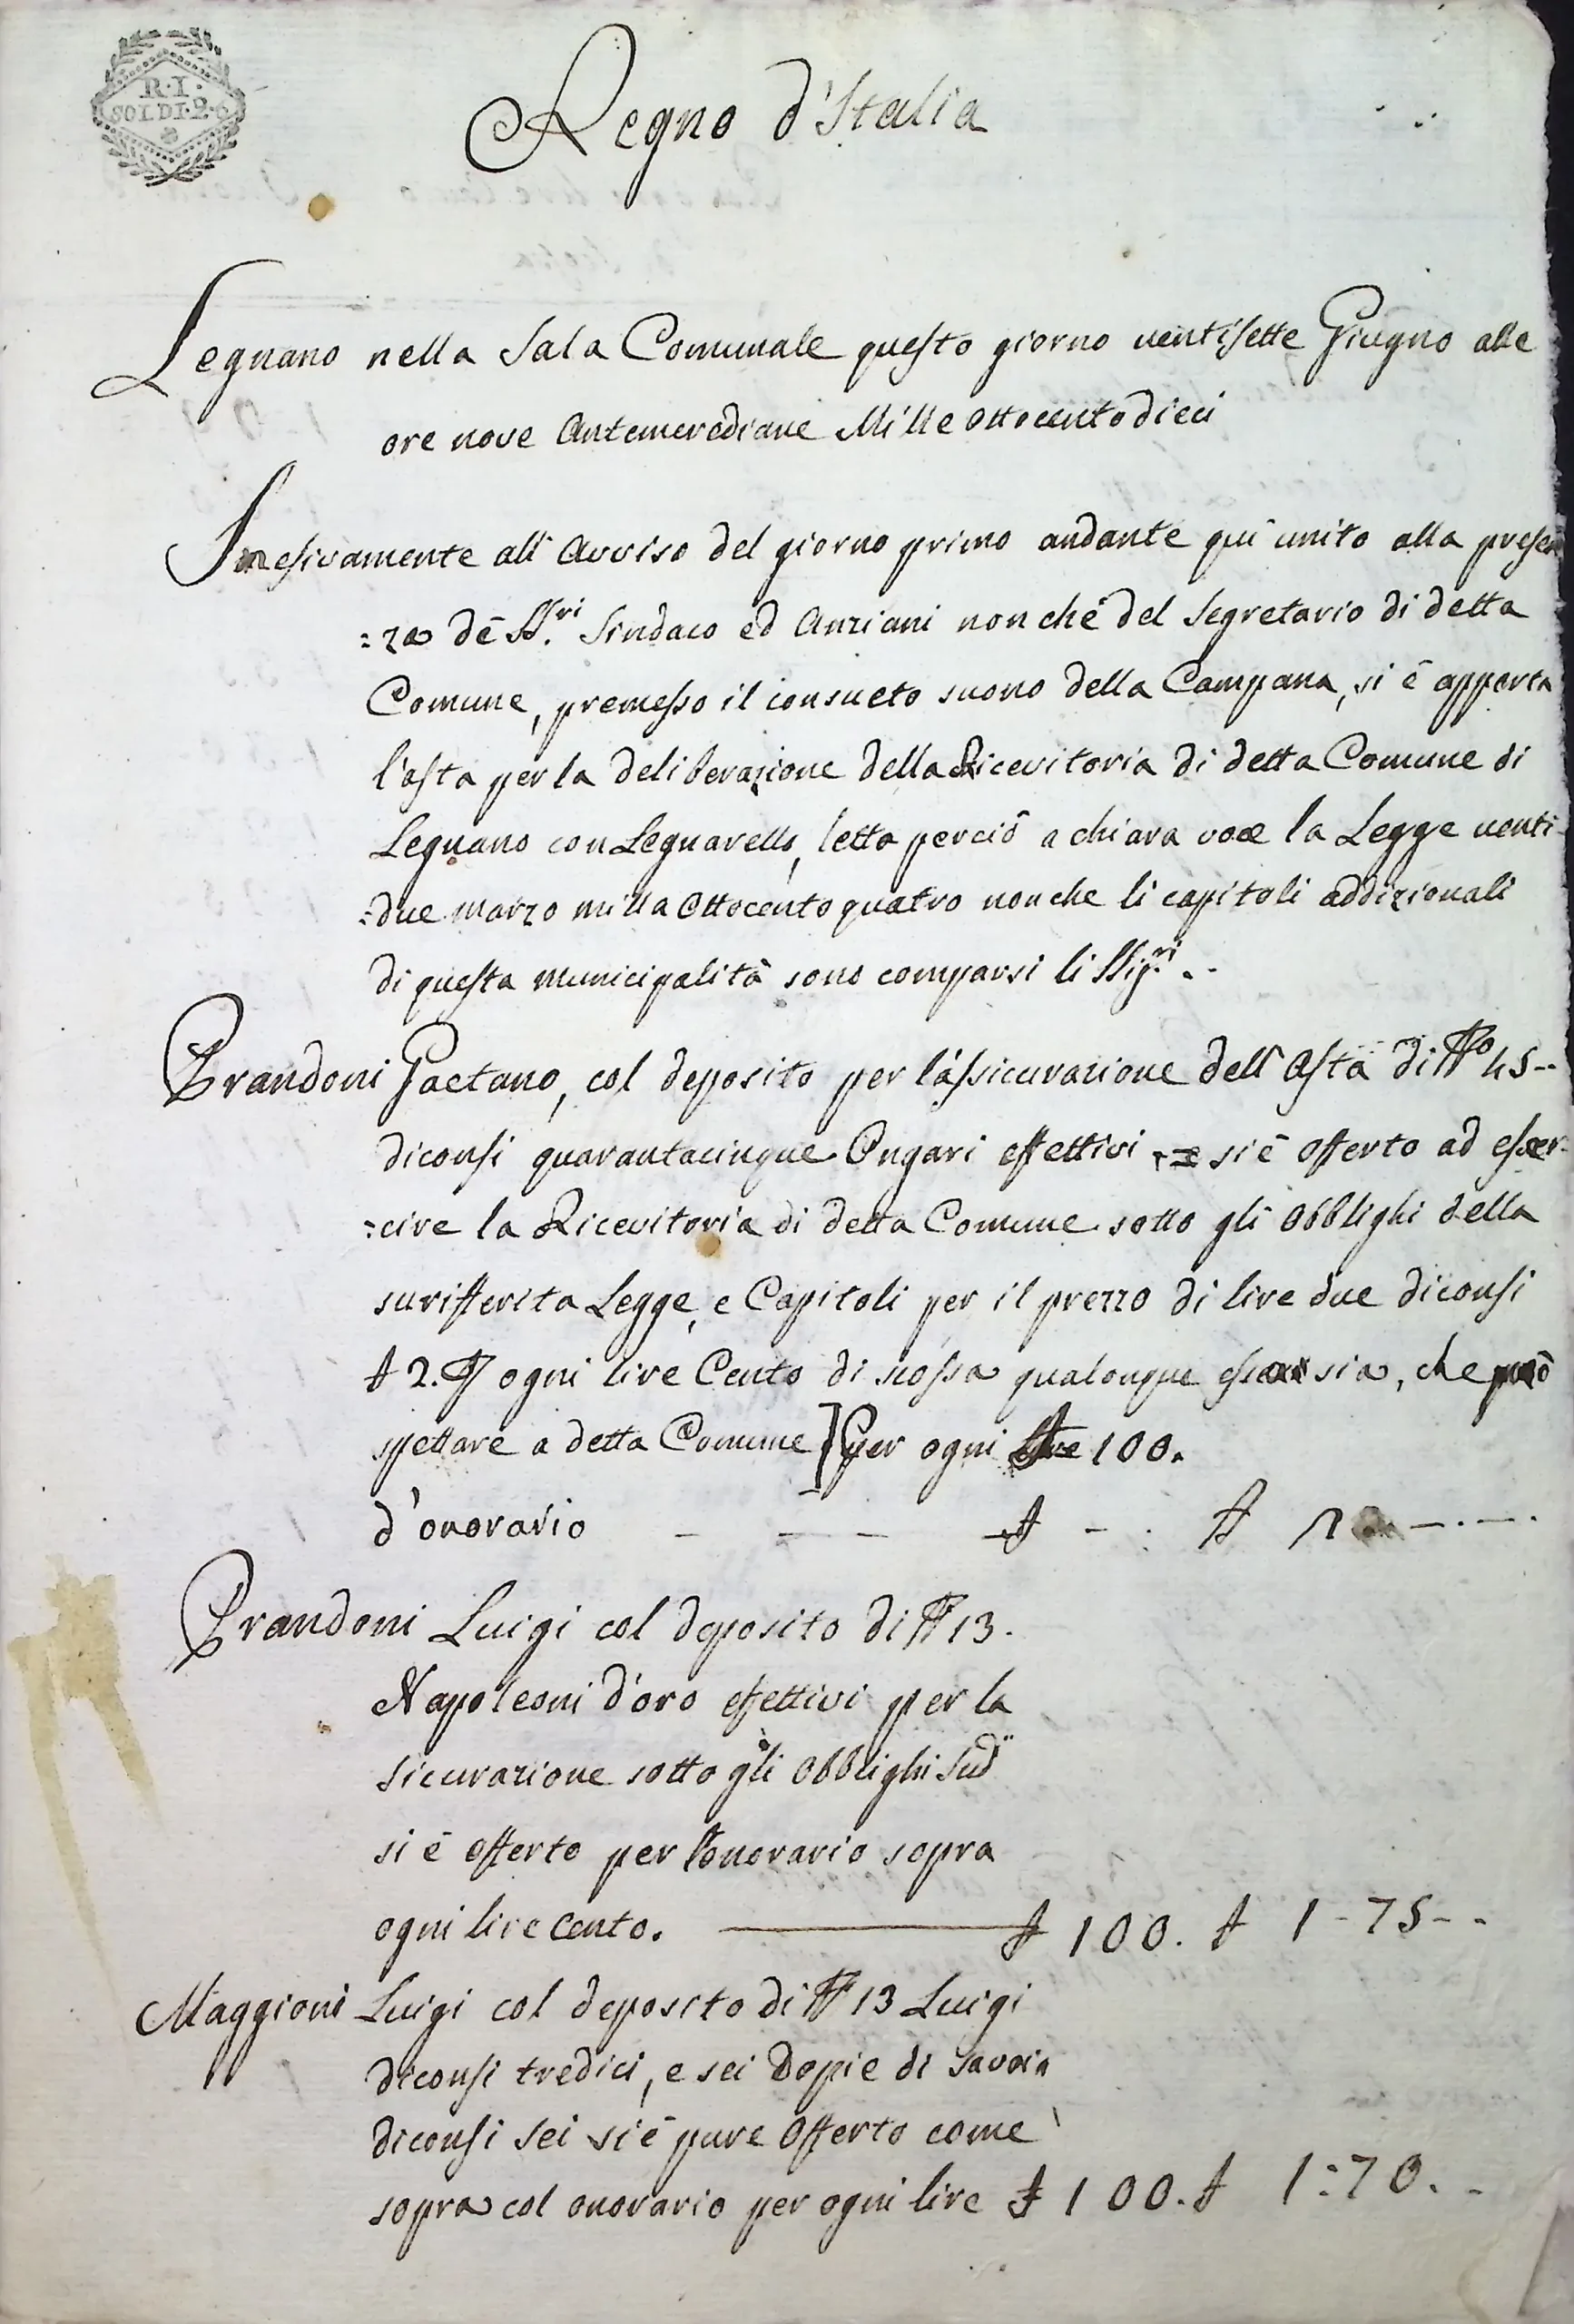 R. I.
SOLDI. 2. 6
Regno d'Italia
Legnano nella Sala Comunale questo giorno ventisette Giugno alle
ore nove Antemerediane Mille ottocento dieci
Inesivamente all' Avviso del giorno primo andante qui unito alla presen
=za dè SS.ri Sindaco ed Anziani non chè del Segretario di detta
Comune, premesso il consueto suono della Campana, si è apperta
l'asta per la deliberazione della Ricevitoria di detta Comune di
Legnano con Legnarello, letta perciò a chiara voce la Legge venti
=due marzo milla ottocento quatro non che li capitoli addizionali
di questa municipalità sono comparsi li SSig.ri
Brandoni Gaetano, col deposito per l'assicurazione dell' Asta di 45--
diconsi quarantacinque Ongari effettivi si è offerto ad esser
=cire la Ricevitoria di detta Comune sotto gli obblighi della
surifferita Legge, e Capitoli per il prezzo di lire due diconsi
£ 2. ogni lire Cento di scossa qualonque essa sia, che può
spettare a detta Comune] Per ogni 100.
d'onorario - - - £ - . £ 2 - . - .
Brandoni Luigi col deposito di 13.
Napoleoni d'oro effettivi per la
sicurazione sotto gli obblighi sud.i
si è offerto per l'onorario sopra
ogni lire cento. £ 100. £ 1-75--
Maggioni Luigi col deposito di 13 Luigi
diconsi tredici, e sei Dopie di Savoia
diconsi sei si è pure offerto come
sopra col onorario per ogni lire £ 100. £ 1:70.-